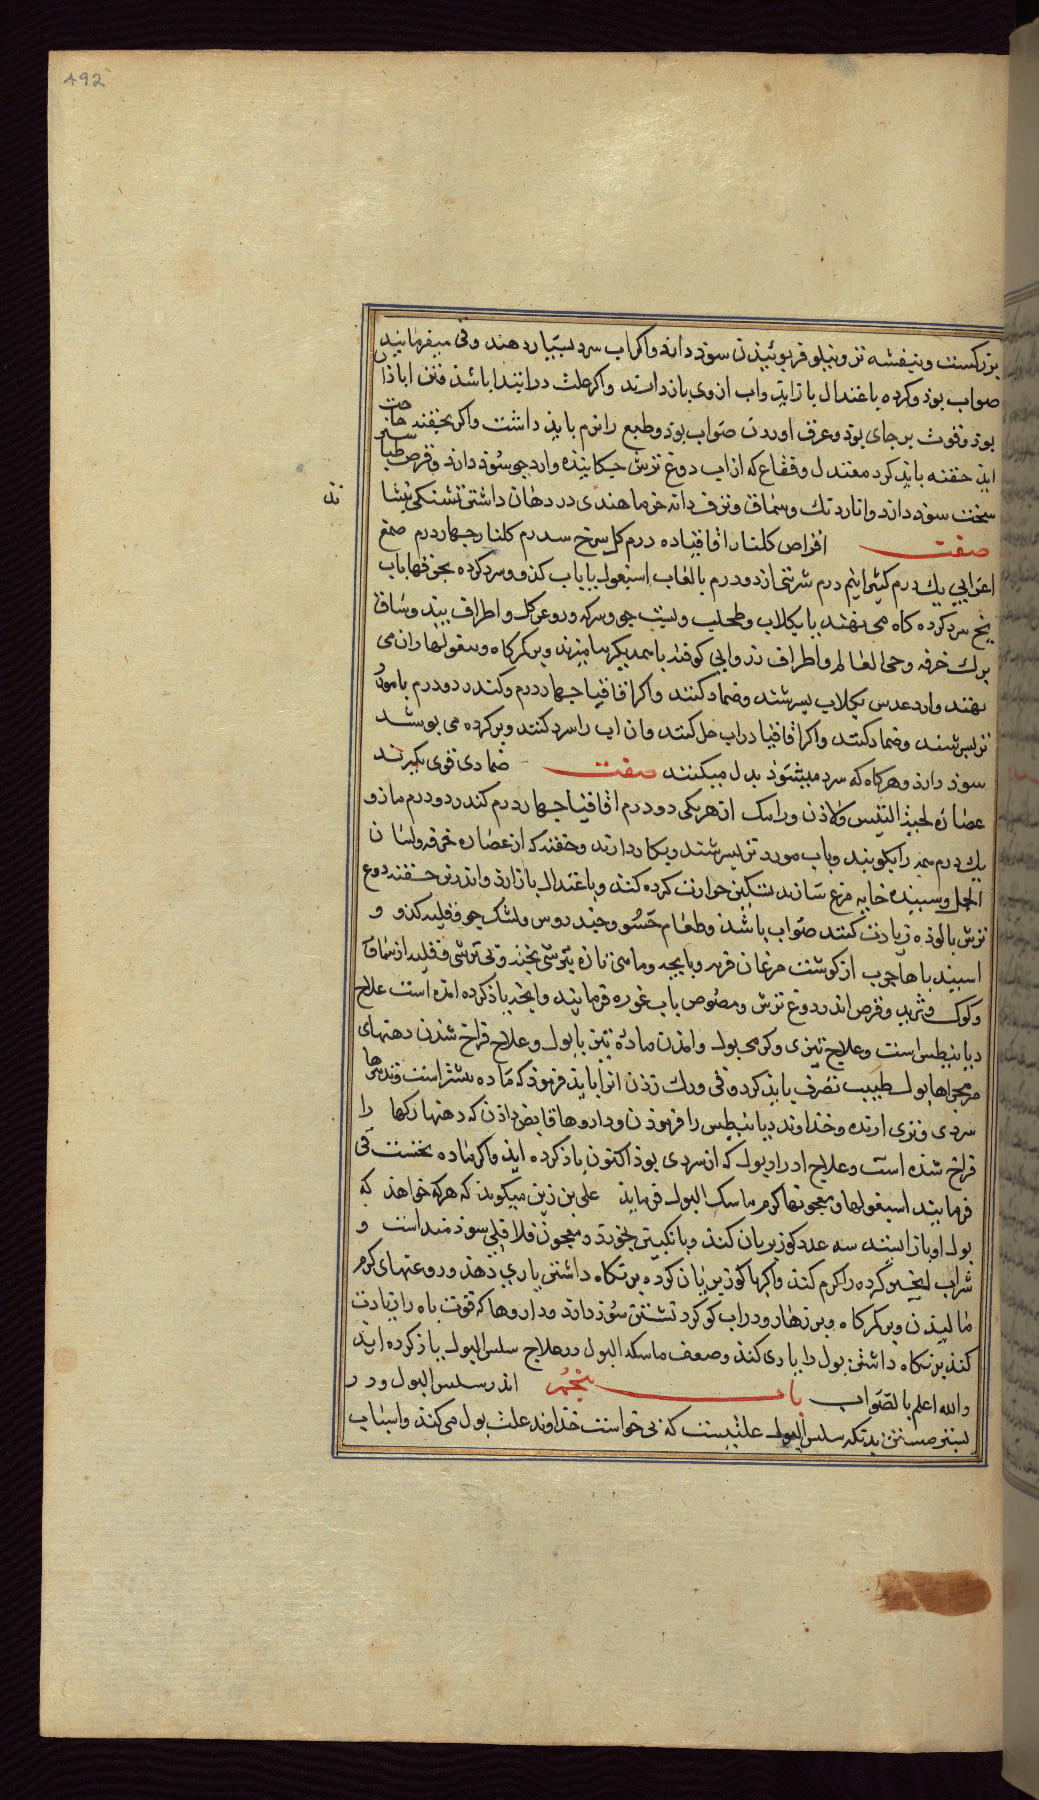 492
و بنفشه تر و نیلوفر بوئیدن سود دارد و اکر اب سرد بسیار دهند و قی میفرمایند
صواب بود و کرده باعتدال باز اید و اب از وی باز دارند و اکر علت در ابتدا باشد
بود و قوت بر جای بود و عرق اوردن صواب بود و طبع را نرم باید داشت و اکر بحقنه حاجت
اید حقنه باید کرد معتدل و فقاع که از اب دوغ ترش چکانیده و ارد جو سود دارد و قرص طباشیر
سخت سود دارد و انار دنک و سماق و ترف و دانه خرما هندی در دهان داشتن تشنکی بنشاند
صفت اقراص کلنار اقاقیا ده درم کل سرخ سه درم کلنار چهار درم صمغ
اعرابی یك درم کثیرا نیم درم شربتی از دو درم با لعاب اسبغول با اب کدو و سرد کرده
یخ سرد کرده کاه می نهند با بکلاب و طحلب و پست جو و سرکه و روغن کل و اطراف بید و ساق
برك خرفه و حی العالم و اطراف رز و ابی کوفته با همدیکر بیامیزند و بر کمرکاه و پهلوها می
نهند و ارد عدس بکلاب بسرشند و ضماد کنند و اکر اقاقیا چهار درم و کندر دو درم باب مورد
تر بسرشند و ضماد کنند و اکر اقاقیا در اب حل کنند و ان اب را سرد کنند و بر کرده می پوشند
سود دارد و هرکاه که سرد میشود بدل میکنند صفت ضمادی قوی بکیرند
عصاره لحیة التیس و لاذن و رامک از هر یکی دو درم اقاقیا چهار درم کندر دو درم مازو
یك درم همه را بکوبند و باب مورد تر بسرشند و بکار دارند و حقنه که از عصاره خرفه و لسان
الحمل و سپیده خایه مرغ سازند تسکین حرارت کرده کند و باعتدال باز ارد و اندرین حقنه دوغ
ترش بالوده زیادت کنند صواب باشد و طعام حسو و جندروس و کشك جو و قلیه کدو و
اسپید باها چرب از کوشت مرغان فربه و پایچه و ماهی تازه بترشی پخته و بی ترشی و قلیه از سماق
و کوک و ثرید و قرص اندر دوغ ترش و مصوص باب غوره فرمایند و اینچه یاد کرده امد است علاج
دیابیطس است و علاج تیزی و کرمی بول و امدن ماده تیز با بول و علاج فراخ شدن دهنهای
مجراها بول طبیب تصرف باید کرد و قی و رك زدن انرا باید فرمود که ماده بیشتر است و تدبیرها
سردی و تری ارنده و خداوند دیابیطس را فرمودن و داروها قابض دادن که دهنها رکها را
فراخ شده است و علاج ادرار بول که از سردی بود اکنون یاد کرده اید و اکر ماده نخست قی
فرمایند اسبغولها و معجونها کرم ماسک البول فرماید علی بن زین میکوید که هر که خواهد که
بول او باز ایستد سه عدد کوز بریان کند و با نکبین بخورد و معجون فلافلی سود مند است و
شراب انجیر کرده را کرم کند و اکر با کوز بریان کرده بر نکاه داشتن یاری دهد و روغنهای کرم
مالیدن و بر کمرکاه و بر زهار و در اب کوکرد نشستن سود دارد و داروها که قوت باه را زیادت
کند بر نکاه داشتن بول را یاری کند و ضعف ماسکه البول در علاج سلس البول یاد کرده اید
والله اعلم بالصواب باب پنجم اندر سلس البول و در
بستر میستن بدانکه سلس البول علتیست که بی خواست خداوند علت بول می کند و اسباب